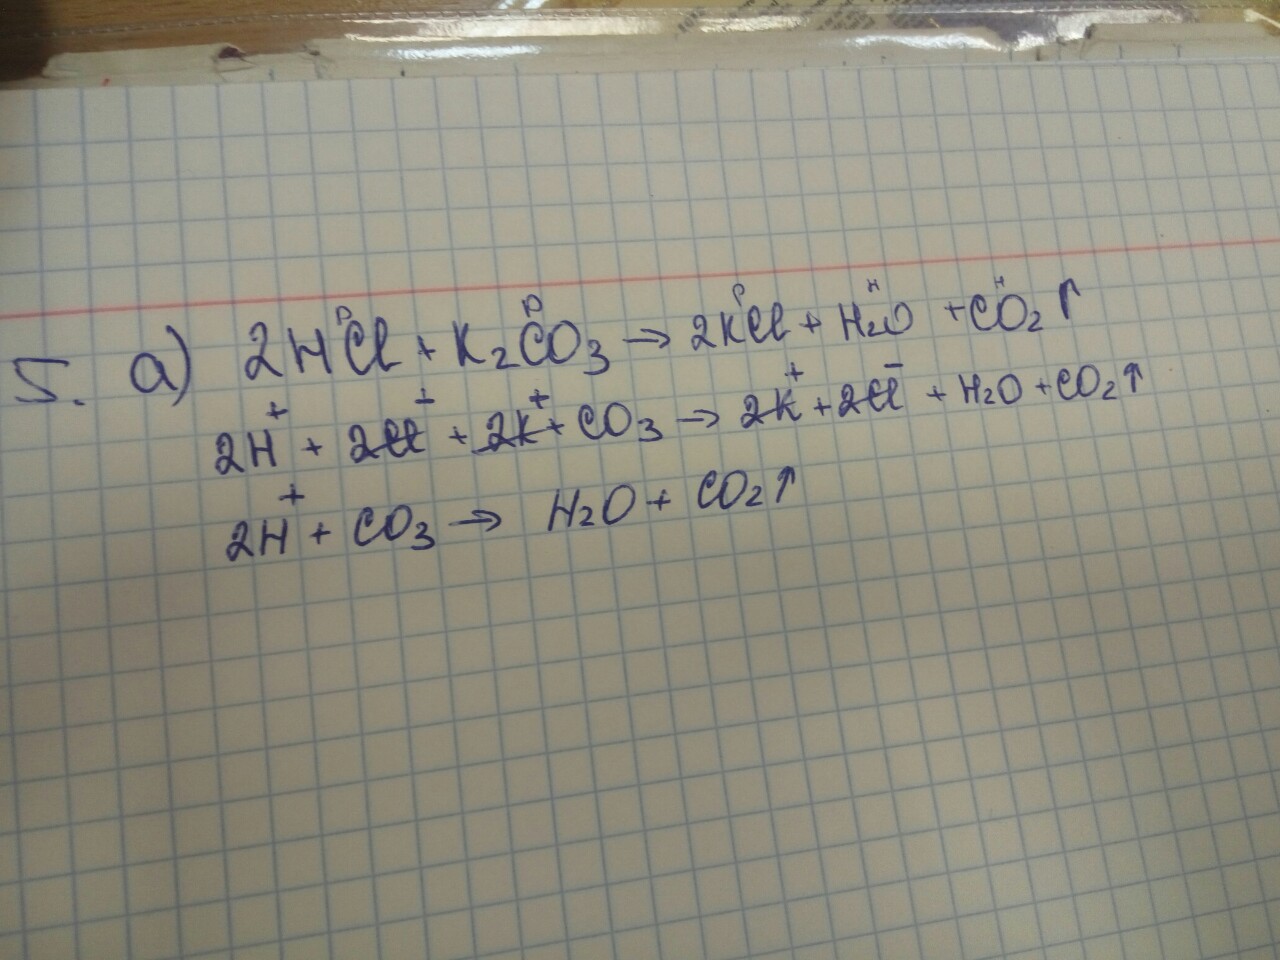 5. а) 2HCl + K₂CO₃ → 2KCl + H₂O + CO₂↑
р р р н н
2H⁺ + 2Cl⁻ + 2K⁺ + CO₃ → 2K⁺ + 2Cl⁻ + H₂O + CO₂↑
2H⁺ + CO₃ → H₂O + CO₂↑